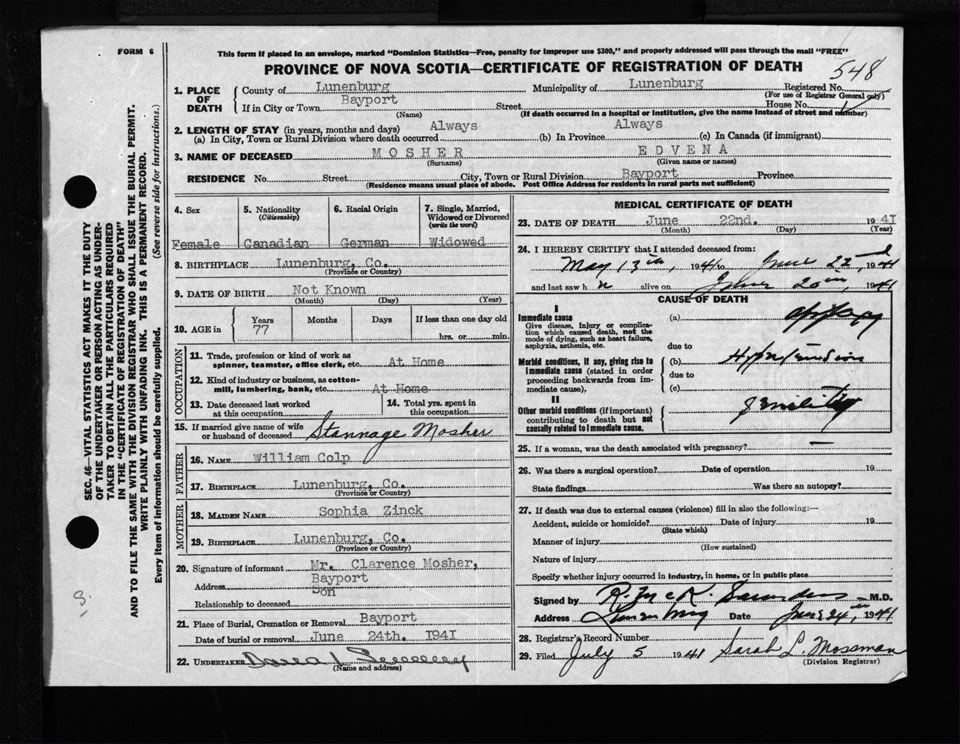 FORM 6
This form if placed in an envelope, marked "Dominion Statistics—Free, penalty for improper use $300," and properly addressed will pass through the mail "FREE"
PROVINCE OF NOVA SCOTIA—CERTIFICATE OF REGISTRATION OF DEATH
548
1. PLACE OF DEATH
County of Lunenburg Municipality of Lunenburg Registered No.
(For use of Registrar General only)
If in City or Town Bayport Street House No.
(Name) (If death occurred in a hospital or institution, give the name instead of street and number)
2. LENGTH OF STAY (in years, months and days)
(a) In City, Town or Rural Division where death occurred Always (b) In Province Always (c) In Canada (if immigrant)
3. NAME OF DECEASED MOSHER EDVENA
(Surname) (Given name or names)
RESIDENCE No. Street City, Town or Rural Division Bayport Province
(Residence means usual place of abode. Post Office Address for residents in rural parts not sufficient)
4. Sex Female
5. Nationality (Citizenship) Canadian
6. Racial Origin German
7. Single, Married, Widowed or Divorced (write the word) Widowed
8. BIRTHPLACE Lunenburg, Co.
(Province or Country)
9. DATE OF BIRTH Not Known
(Month) (Day) (Year)
10. AGE in Years 77 Months Days If less than one day old
hrs. or min.
OCCUPATION
11. Trade, profession or kind of work as spinner, teamster, office clerk, etc. At Home
12. Kind of industry or business, as cotton-mill, lumbering, bank, etc. At Home
13. Date deceased last worked at this occupation
14. Total yrs. spent in this occupation
15. If married give name of wife or husband of deceased Stannage Mosher
FATHER
16. NAME William Colp
17. BIRTHPLACE Lunenburg, Co.
(Province or Country)
MOTHER
18. MAIDEN NAME Sophia Zinck
19. BIRTHPLACE Lunenburg, Co.
(Province or Country)
20. Signature of informant Mr. Clarence Mosher,
Address Bayport
Relationship to deceased Son
21. Place of Burial, Cremation or Removal Bayport
Date of burial or removal June 24th. 1941
22. UNDERTAKER
(Name and address)
MEDICAL CERTIFICATE OF DEATH
23. DATE OF DEATH June 22nd. 1941
(Month) (Day) (Year)
24. I HEREBY CERTIFY that I attended deceased from:
May 13th, 1941 to June 22nd 1941
and last saw h alive on 20th, 1941
CAUSE OF DEATH
I
Immediate cause
Give disease, injury or complication which caused death, not the mode of dying, such as heart failure, asphyxia, asthenia, etc.
(a) apoplexy
due to
Morbid conditions, if any, giving rise to immediate cause (stated in order proceeding backwards from immediate cause).
(b) Hypertension
due to
(c)
II
Other morbid conditions (if important) contributing to death but not causally related to immediate cause.
Senility
25. If a woman, was the death associated with pregnancy? —
26. Was there a surgical operation? Date of operation 19
State findings Was there an autopsy?
27. If death was due to external causes (violence) fill in also the following:—
Accident, suicide or homicide? Date of injury 19
(State which)
Manner of injury
(How sustained)
Nature of injury
Specify whether injury occurred in industry, in home, or in public place
Signed by R. McK. Saunders M.D.
Address Lunenburg Date June 24th, 1941
28. Registrar's Record Number
29. Filed July 5 1941 Sarah L. Mossman
(Division Registrar)
SEC. 46—VITAL STATISTICS ACT MAKES IT THE DUTY
OF THE UNDERTAKER OR PERSON ACTING AS UNDER-
TAKER TO OBTAIN ALL THE PARTICULARS REQUIRED
IN THE "CERTIFICATE OF REGISTRATION OF DEATH"
AND TO FILE THE SAME WITH THE DIVISION REGISTRAR WHO SHALL ISSUE THE BURIAL PERMIT.
WRITE PLAINLY WITH UNFADING INK. THIS IS A PERMANENT RECORD.
Every item of information should be carefully supplied. (See reverse side for instructions.)